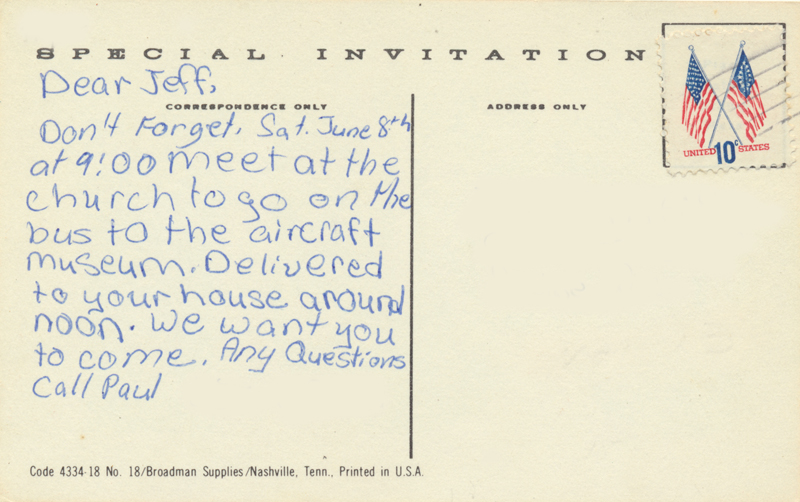 SPECIAL INVITATION
Dear Jeff,
CORRESPONDENCE ONLY
ADDRESS ONLY
Don't Forget, Sat. June 8th
at 9:00 meet at the
church to go on the
bus to the aircraft
museum. Delivered
to your house around
noon. We want you
to come. Any Questions
Call Paul
UNITED 10c STATES
Code 4334-18 No. 18/Broadman Supplies/Nashville, Tenn., Printed in U.S.A.